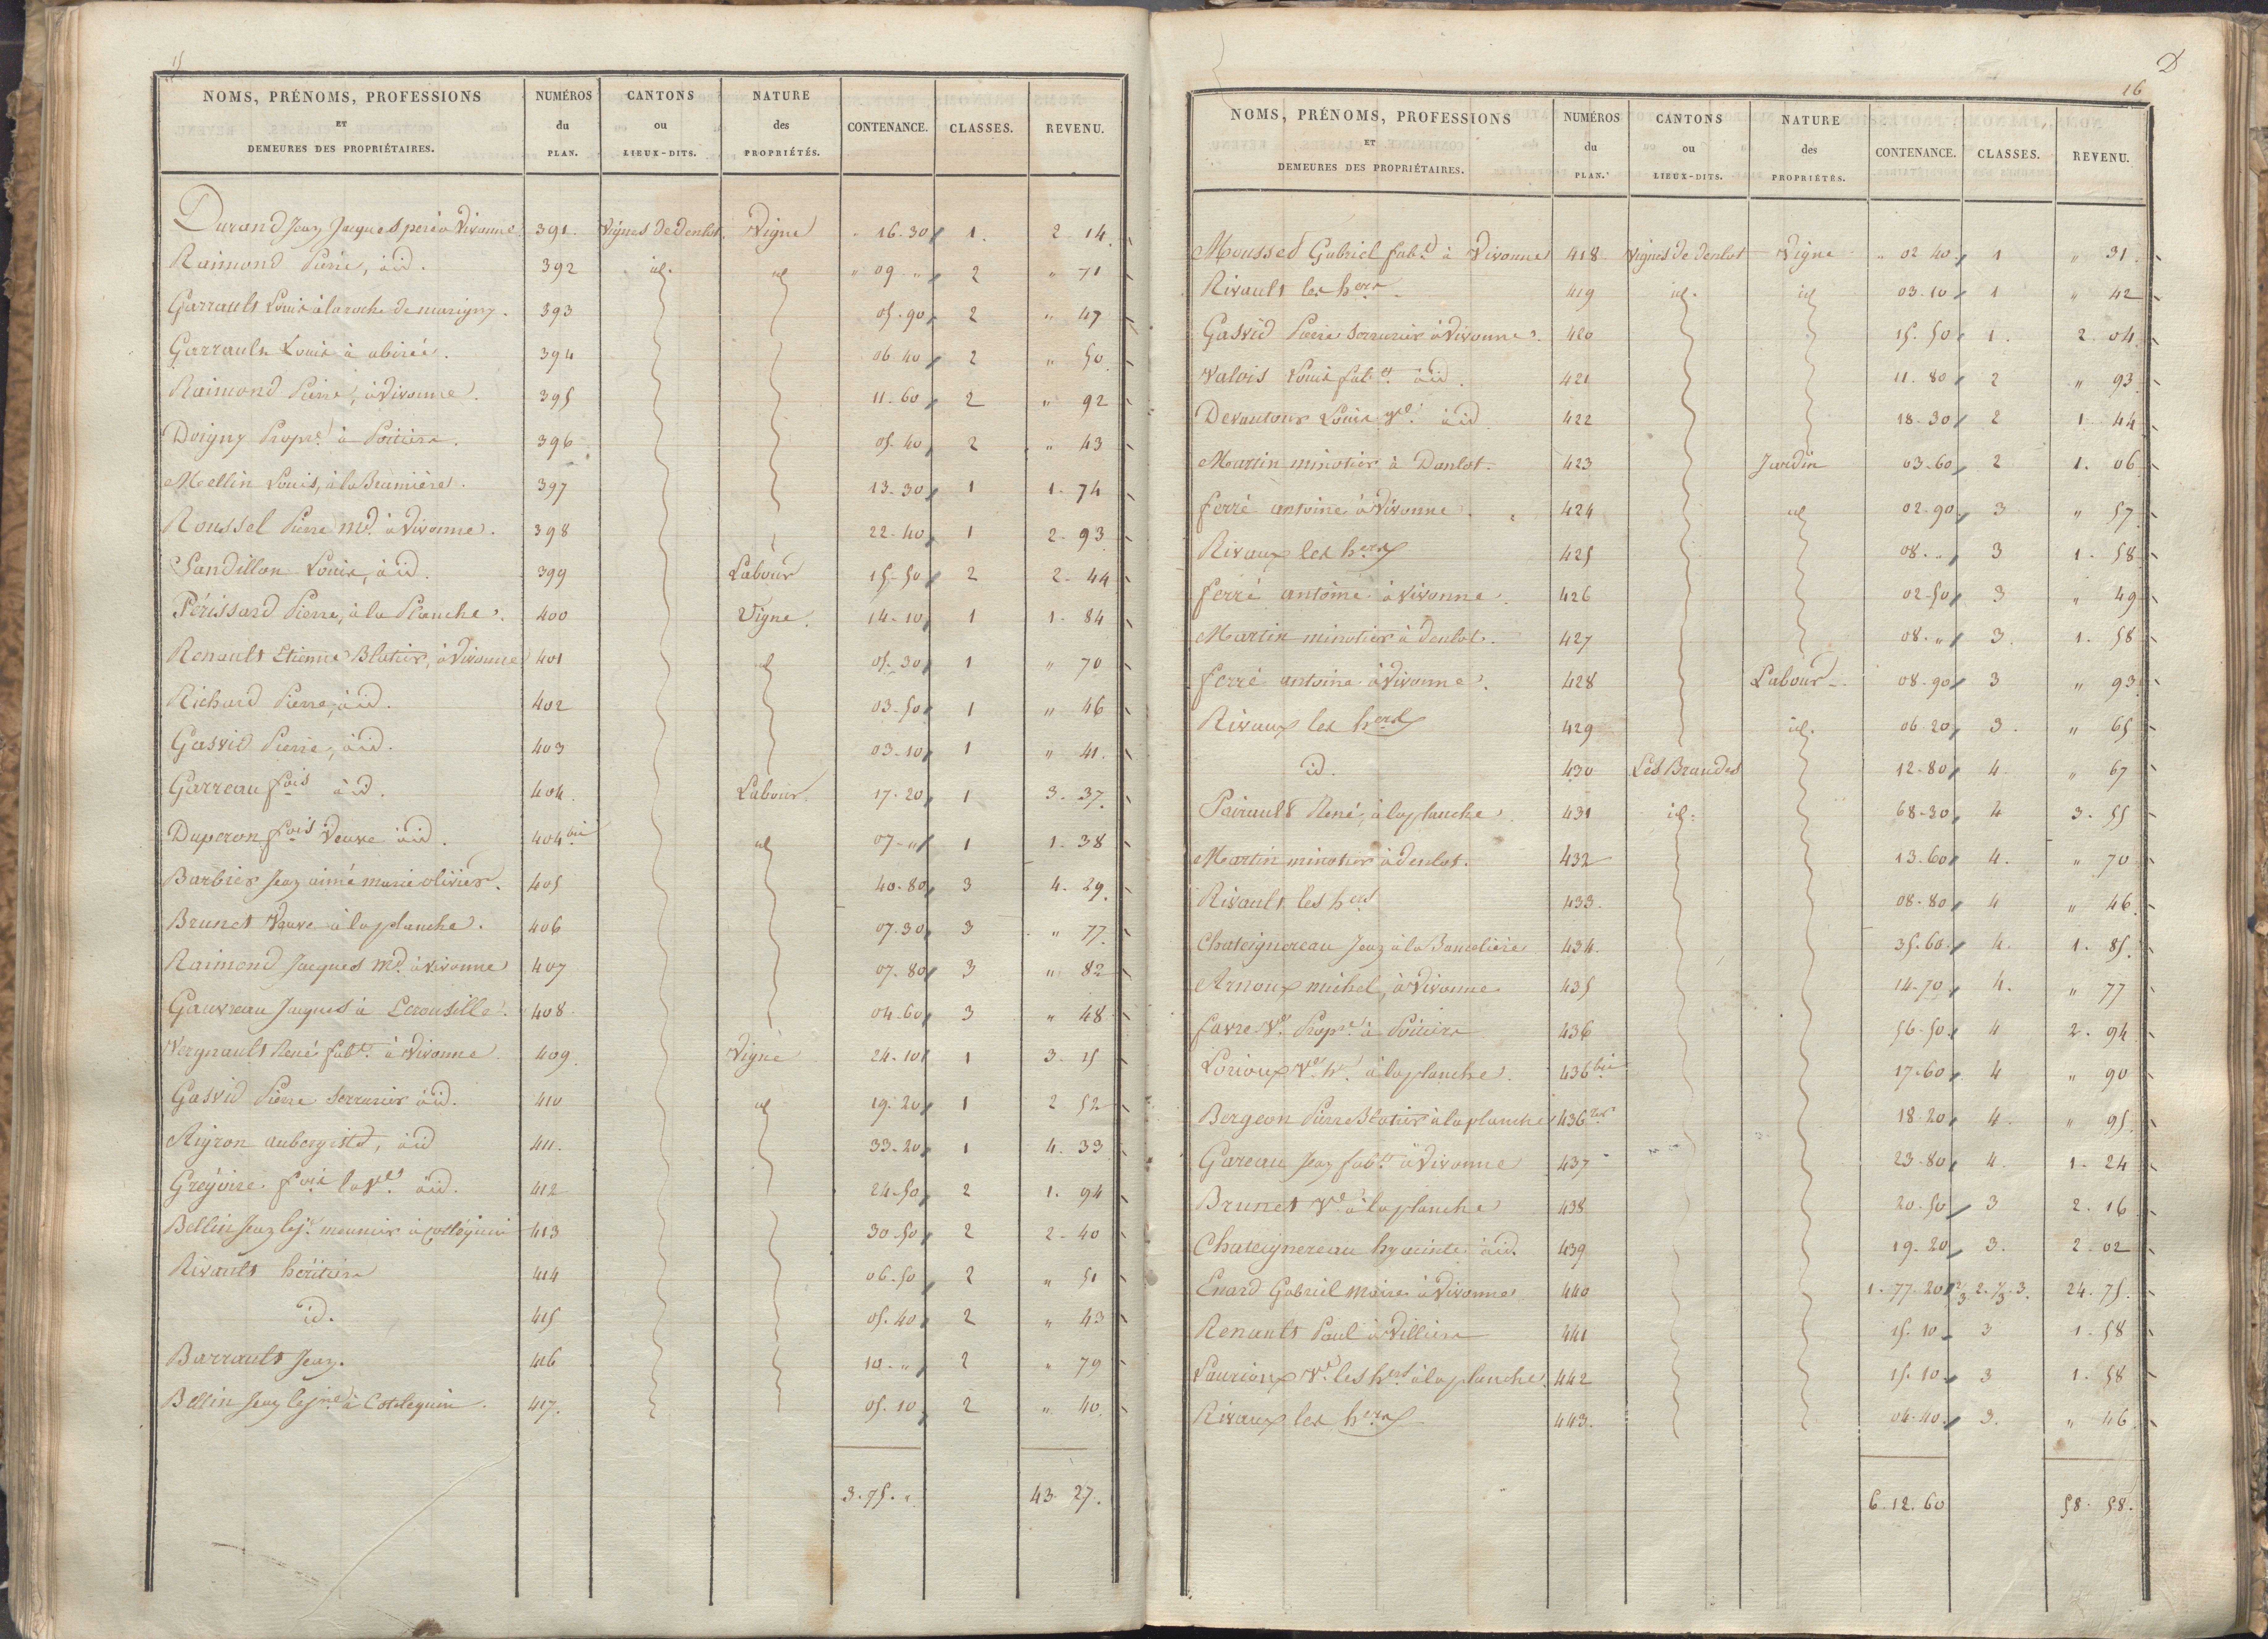 NOMS, PRÉNOMS, PROFESSIONS ET DEMEURES DES PROPRIÉTAIRES. NUMÉROS du PLAN. CANTONS ou LIEUX-DITS. NATURE des PROPRIÉTÉS. CONTENANCE. CLASSES. REVENU.
Durand Jean Jacques père à Vivonne 391. Vignes de Denlot. Vigne 16.30 1. 2 14
Raimond Pierre, à id. 392 id. id " 09 " 2 " 71
Garrault Louis à la roche de marigny. 393 05.90 2 " 47
Garrault Louis à abirée. 394 06.40 2 " 50
Raimond Pierre, à Vivonne. 395 11.60 2 " 92
Doigny Propre. à Poitiers. 396 05.40 2 " 43
Mellin Louis, à la Beumière. 397 13.30 1 1. 74
Roussel Pierre Md. à Vivonne. 398 22.40 1 2. 93
Sandillon Louis, à id. 399 Labour 15.50 2 2. 44
Périssard Pierre, à la Planche. 400 Vigne. 14.10 1 1. 84
Renault Etienne Blatier, à Vivonne 401 id 05.30 1 " 70
Richard Pierre, à id. 402 03.50 1 " 46
Gasvid Pierre, à id. 403 03.10 1 " 41.
Garreau fois à id. 404. Labour. 17.20 1 3. 37.
Duperon fois Veuve à id. 404 bis id 07." 1 1. 38
Barbier Jean aimé marie olivier. 405 40.80 3 4. 29.
Brunet Veuve à la planche. 406 07.30 3 " 77.
Raimond Jacques Md. à Vivonne 407 07.80 3 " 82
Gauvreau Jaques à Lerousille. 408 04.60 3 " 48
Vergnault René fabt. à Vivonne 409. Vigne 24.10 1 3. 15
Gasvid Pierre Serrurier à id. 410 id 19.20 1 2 52
Riyron aubergiste, à id 411. 33.20 1 4. 33
Grégoire fois la Ve. à id. 412 24.50 2 1. 94
Bellin Jean le je. meunier à Cotlequin 413 30.50 2 2. 40
Rivault héritiers 414 06.50 2 " 51
id. 415 05.40 2 " 43
Barrault Jean. 416 10." 2 " 79
Bellin Jean le jne à Cotelequin. 417. 05.10 2 " 40.
3.75." 43 27.
D
16
NOMS, PRÉNOMS, PROFESSIONS ET DEMEURES DES PROPRIÉTAIRES. NUMÉROS du PLAN. CANTONS ou LIEUX-DITS. NATURE des PROPRIÉTÉS. CONTENANCE. CLASSES. REVENU.
Mousset Gabriel fabt. à Vivonne 418 Vignes de denlot Vigne " 02 40 1 " 31.
Rivault les hers 419 id. id 03.10 1 " 42
Gasvid Pierre Serrurier à Vivonne. 420 15.50 1. 2. 04.
Valois Louis fabt. à id. 421 11.80 2 " 93
Devautour Louis à id 422 18.30 2 1. 44
Martin minotier à Danlot. 423 Jardin 03.60 2 1. 06
ferré antoine à Vivonne. 424 id 02.90 3 " 57
Rivaux les hers 425 08." 3 1. 58
ferré antoine à Vivonne. 426 02.50 3 " 49
Martin minotier à denlot. 427 08." 3. 1. 58
ferré antoine à Vivonne. 428 Labour 08.90 3 " 93
Rivaux les hers 429 id. 06.20 3. " 65
id. 430 Les Brandes 12.80 4. " 67
Pairault René, à la planche 431 id. 68.30 4 3. 55
Martin minotier à denlot. 432 13.60 4. " 70
Rivault les hers 433. 08.80 4 " 46.
Chateignereau Jean à la Banceliere 434. 35.60. 4. 1. 85.
Arnoux michel, à Vivonne 435 14.70 4. " 77
favre Ve. Propre. à Poitiers 436 56.50 4 2. 94
Lorioux Ve. hr. à la planche. 436 bis 17.60 4 " 90
Bergeon Pierre Blatier à la planche 436 ter 18.20 4. " 95
Gareau Jean fabt. à Vivonne 437 23.80 4. 1. 24
Brunet Ve. à la planche 438 20.50 3 2. 16
Chateignereau hyacinte à id. 439 19.20 3. 2. 02
Enard Gabriel Maire à Vivonne 440 1.77.20 2/3 2. 1/3 3. 24. 75.
Renault Paul à Villiers 441 15.10 3 1. 58
Laurioux Ve. les hers à la planche. 442 15.10 3 1. 58
Rivaux les hers 443. 04.40. 3. " 46
6.12.60 58. 58.